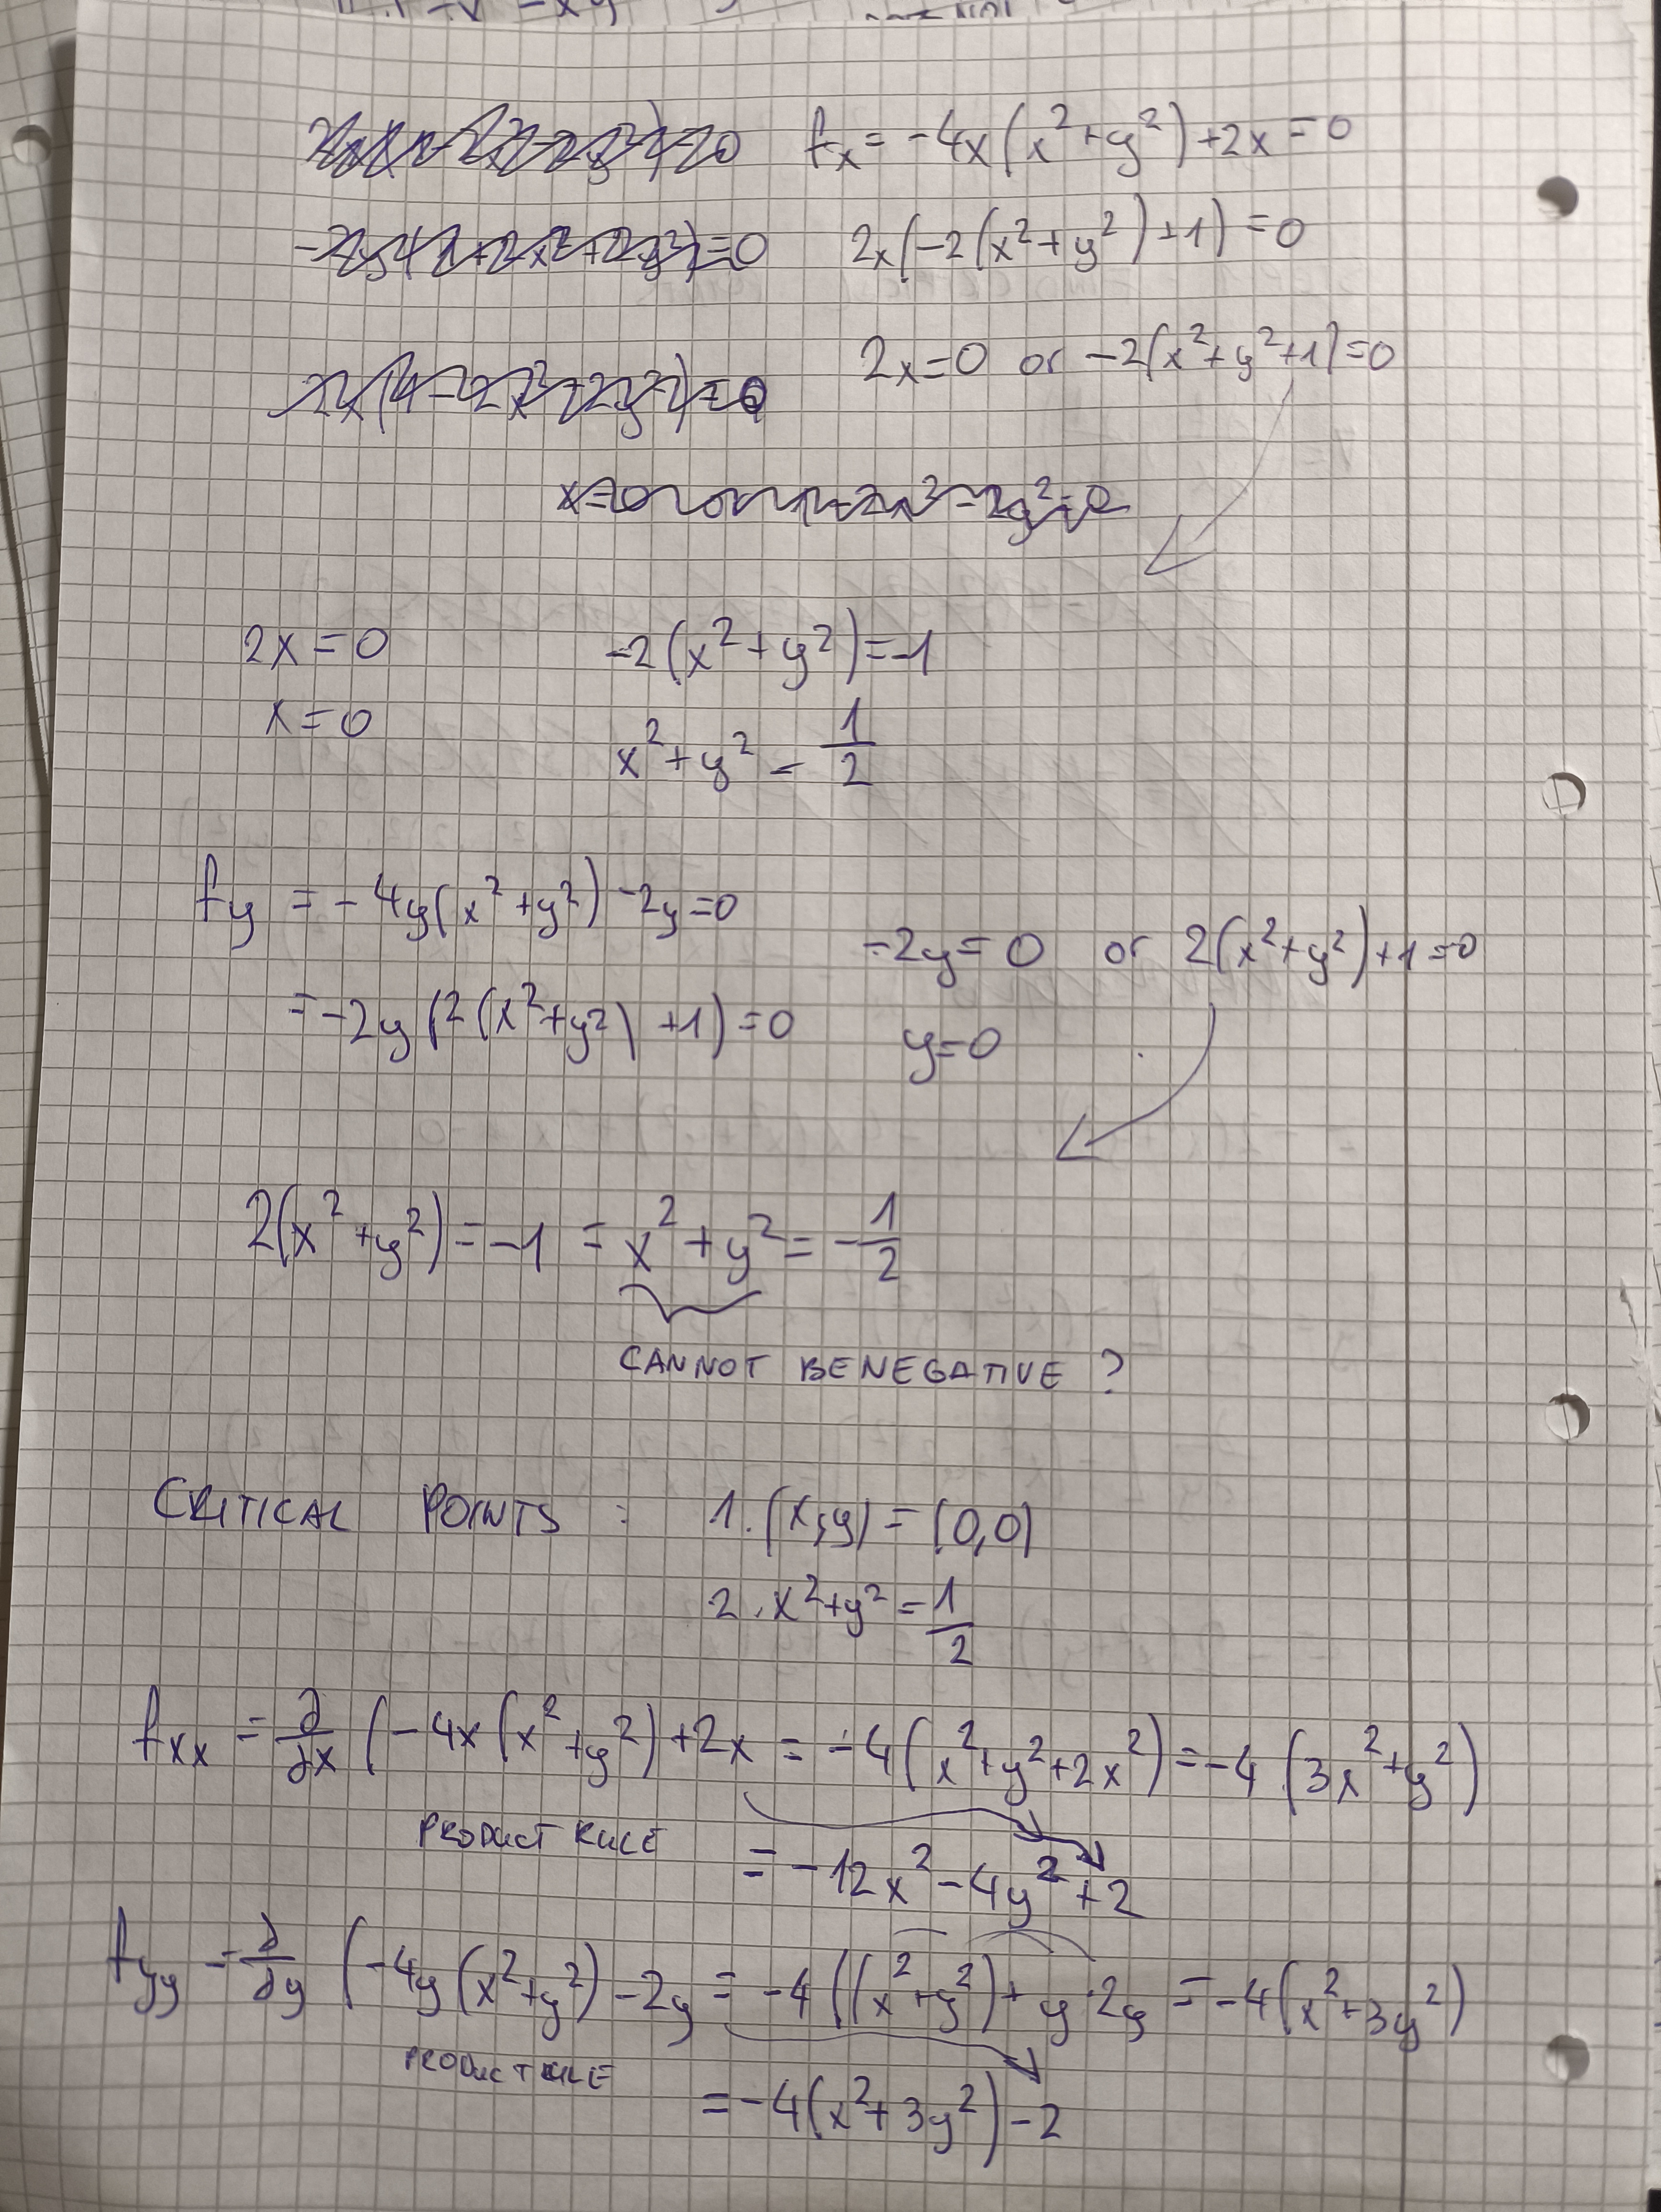 fx = -4x(x²+y²)+2x=0
2x(-2(x²+y²)+1)=0
2x=0 or -2(x²+y²+1)=0
2x=0 -2(x²+y²)=-1
x=0 x²+y²=1/2
fy = -4y(x²+y²)-2y=0
-2y=0 or 2(x²+y²)+1=0
=-2y(2(x²+y²)+1)=0
y=0
2(x²+y²)=-1 = x²+y²=-1/2
CANNOT BE NEGATIVE ?
CRITICAL POINTS : 1. (x,y)=(0,0)
2. x²+y²=1/2
fxx = ∂/∂x (-4x(x²+y²)+2x = -4(x²+y²+2x²)=-4(3x²+y²)
PRODUCT RULE
= -12x²-4y²+2
fyy = ∂/∂y (-4y(x²+y²)-2y = -4((x²+y²)+y·2y = -4(x²+3y²)
PRODUCT RULE
= -4(x²+3y²)-2